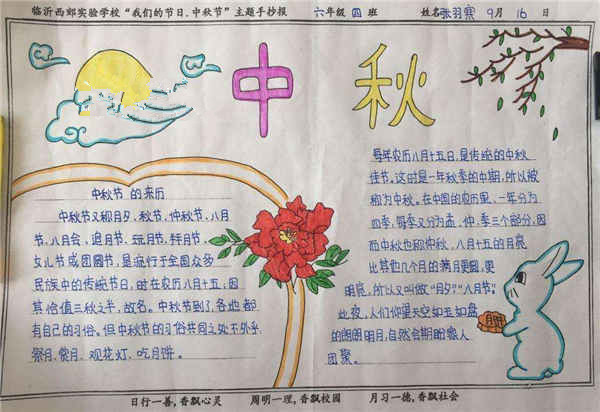 临沂西郊实验学校“我们的节日.中秋节”主题手抄报 六年级 四 班 姓名 张羽寒 9月 16 日
中秋
中秋节 的来历
中秋节又称月夕、秋节、仲秋节、八月
节、八月会、追月节、玩月节、拜月节、
女儿节或团圆节,是流行于全国众多
民族中的传统节日,时在农历八月十五,因
其恰值三秋之半,故名。中秋节到了,各地都
有自己的习俗。但中秋节的习俗共同之处不外乎
祭月、赏月、观花灯、吃月饼。
每年农历八月十五日,是传统的中秋
佳节。这时是一年秋季的中期,所以被
称为中秋。在中国的农历里,一年分为
四季,每季又分为孟、仲、季三个部分,因
而中秋也称仲秋。八月十五的月亮
比其他几个月的满月更圆,更
明亮,所以又叫做“月夕”“八月节”。
此夜,人们仰望天空如玉如盘
的朗朗明月,自然会期盼家人
团聚。
日行一善,香飘心灵 周明一理,香飘校园 月习一德,香飘社会